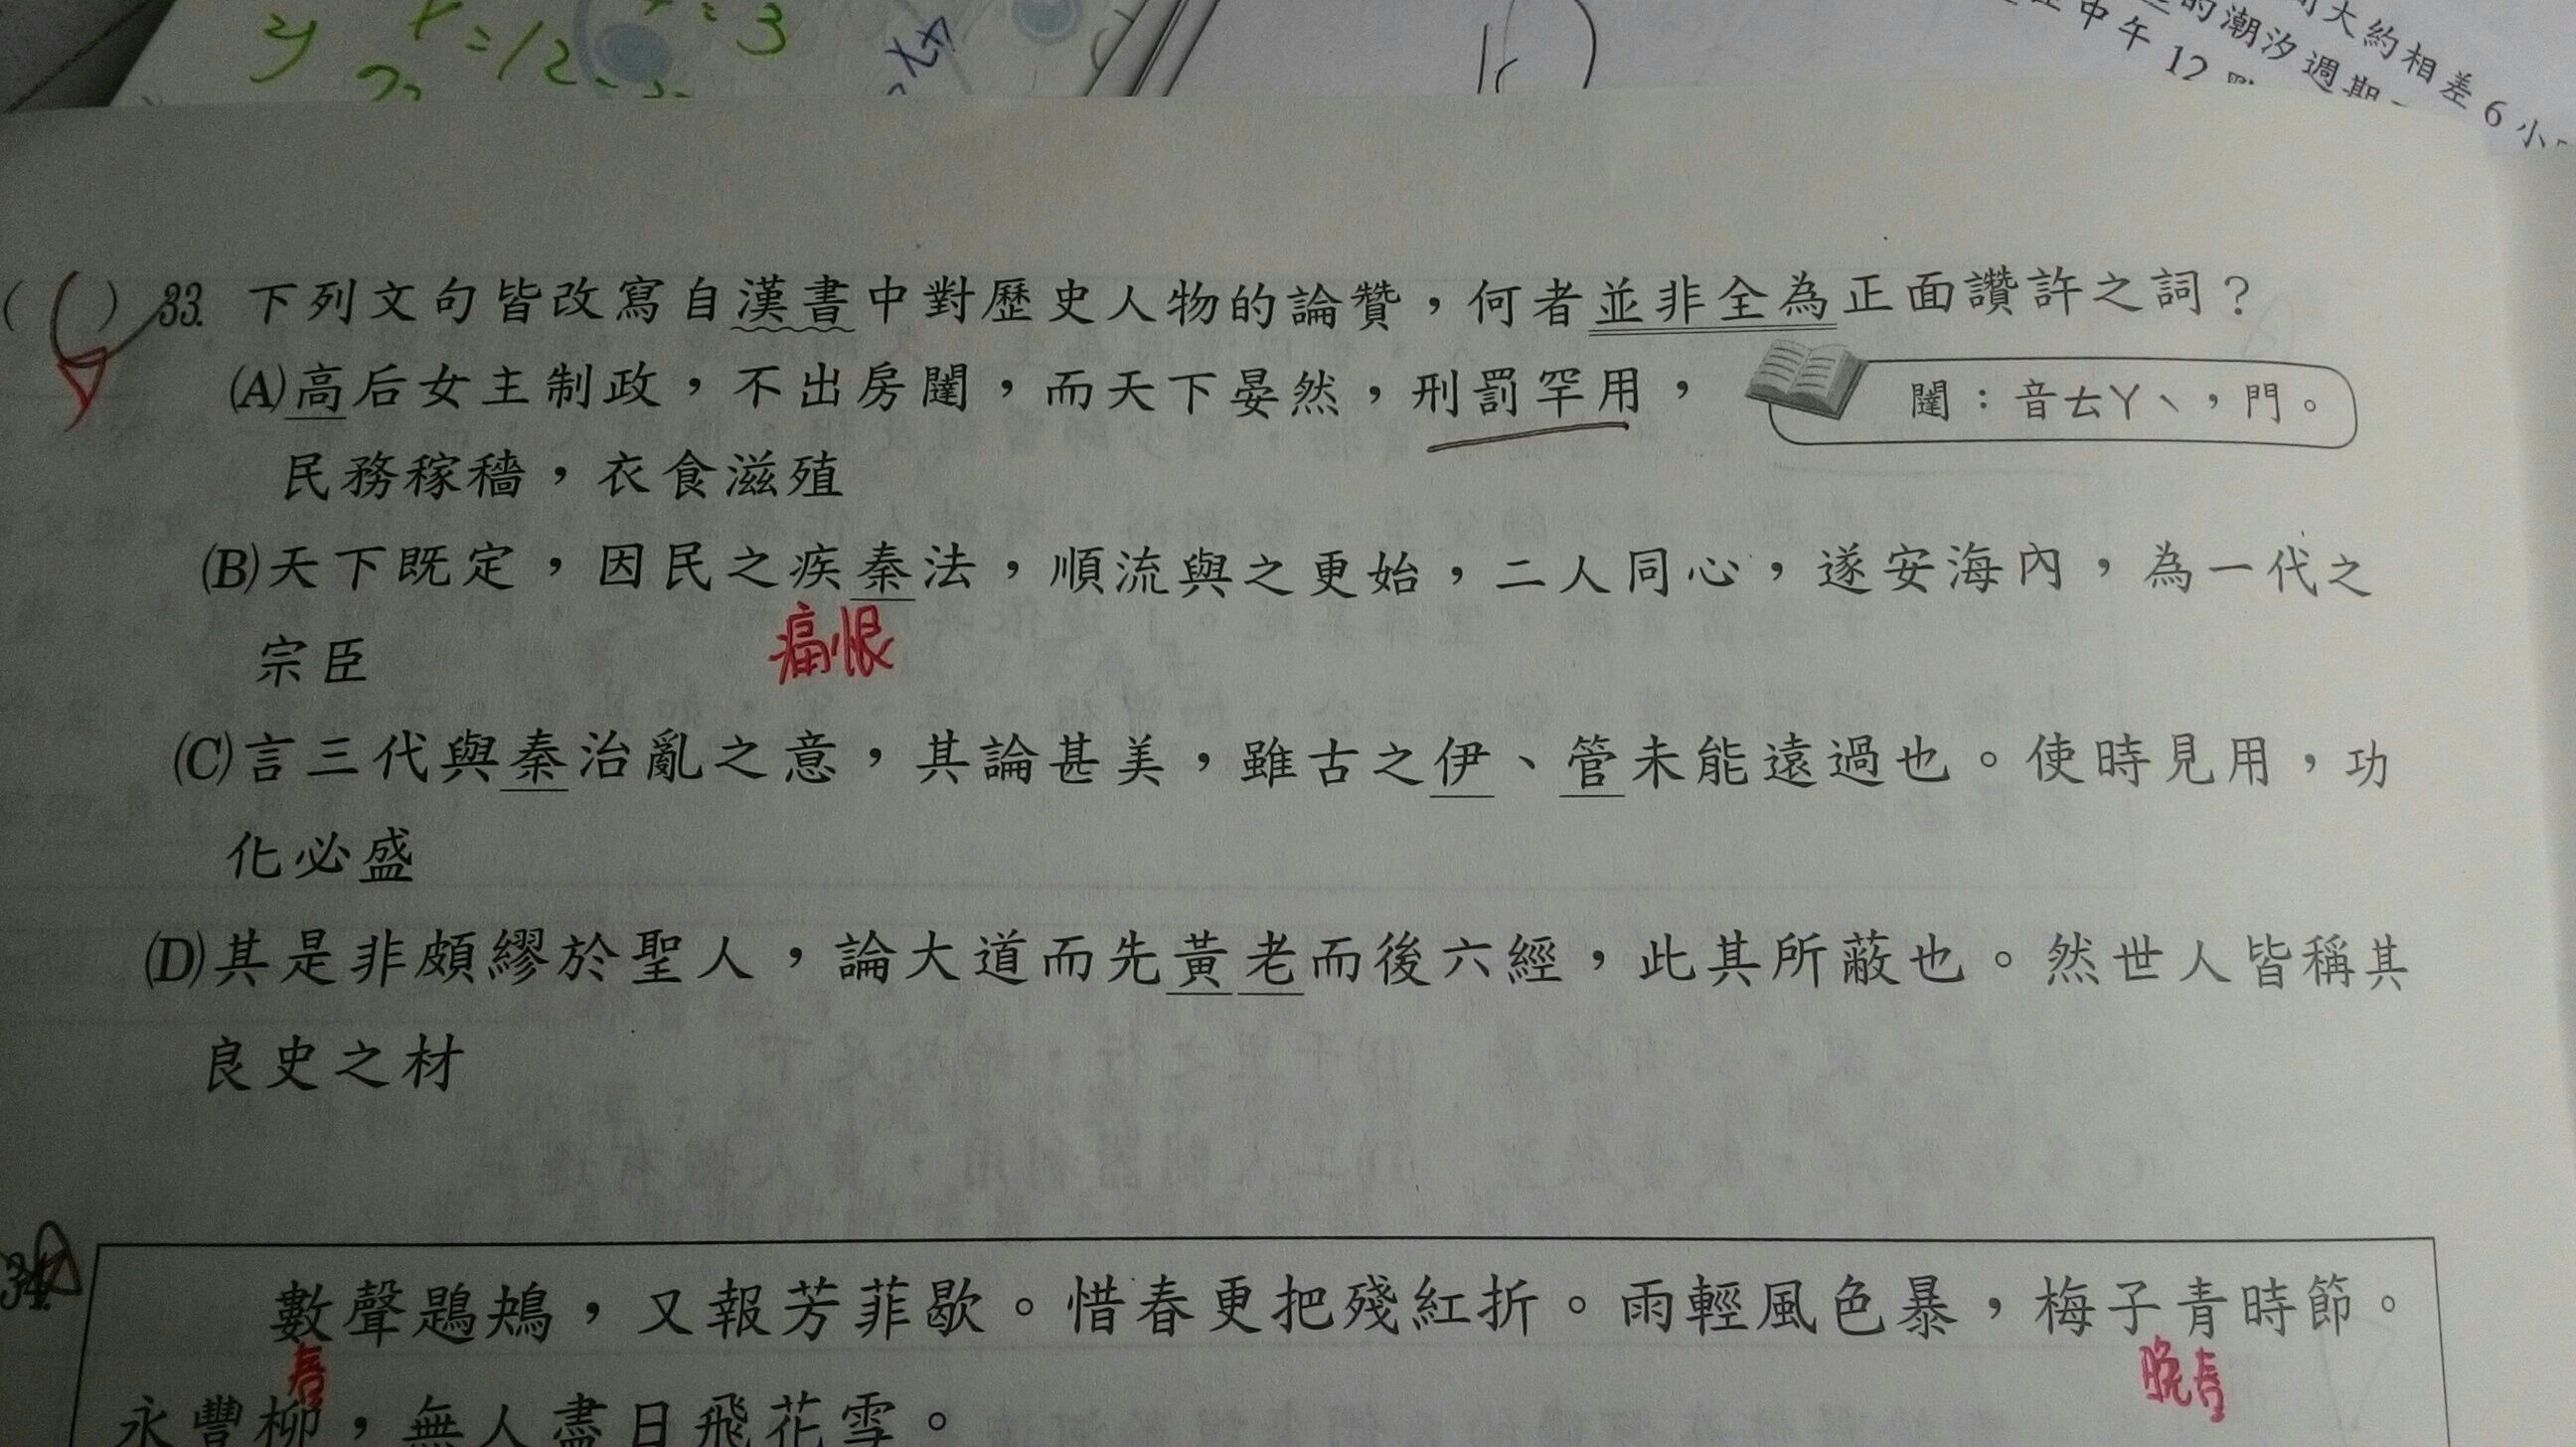 y x=12
=3
大約相差6小
的潮汐週期
中午12
( ) 33. 下列文句皆改寫自漢書中對歷史人物的論贊，何者並非全為正面讚許之詞？
(A)高后女主制政，不出房闥，而天下晏然，刑罰罕用，
闥：音ㄊㄚˋ，門。
民務稼穡，衣食滋殖
(B)天下既定，因民之疾秦法，順流與之更始，二人同心，遂安海內，為一代之
痛恨
宗臣
(C)言三代與秦治亂之意，其論甚美，雖古之伊、管未能遠過也。使時見用，功
化必盛
(D)其是非頗繆於聖人，論大道而先黃老而後六經，此其所蔽也。然世人皆稱其
良史之材
34.
數聲鶗鴂，又報芳菲歇。惜春更把殘紅折。雨輕風色暴，梅子青時節。
春
晚春
永豐柳，無人盡日飛花雪。